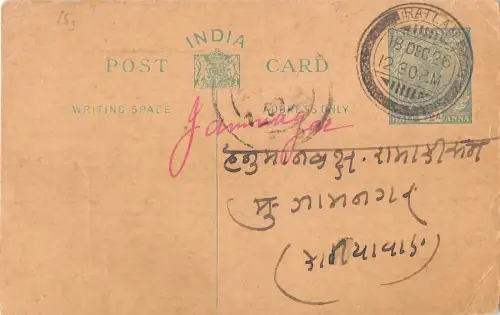 INDIA
POST CARD
WRITING SPACE
ADDRESS ONLY
RATLAM
18 DEC. 26
12.30 PM
ANNA
Jamnagar
हनुमानबक्ष. रामाकीसन
मु. जामनगर
(काठीयावाड)